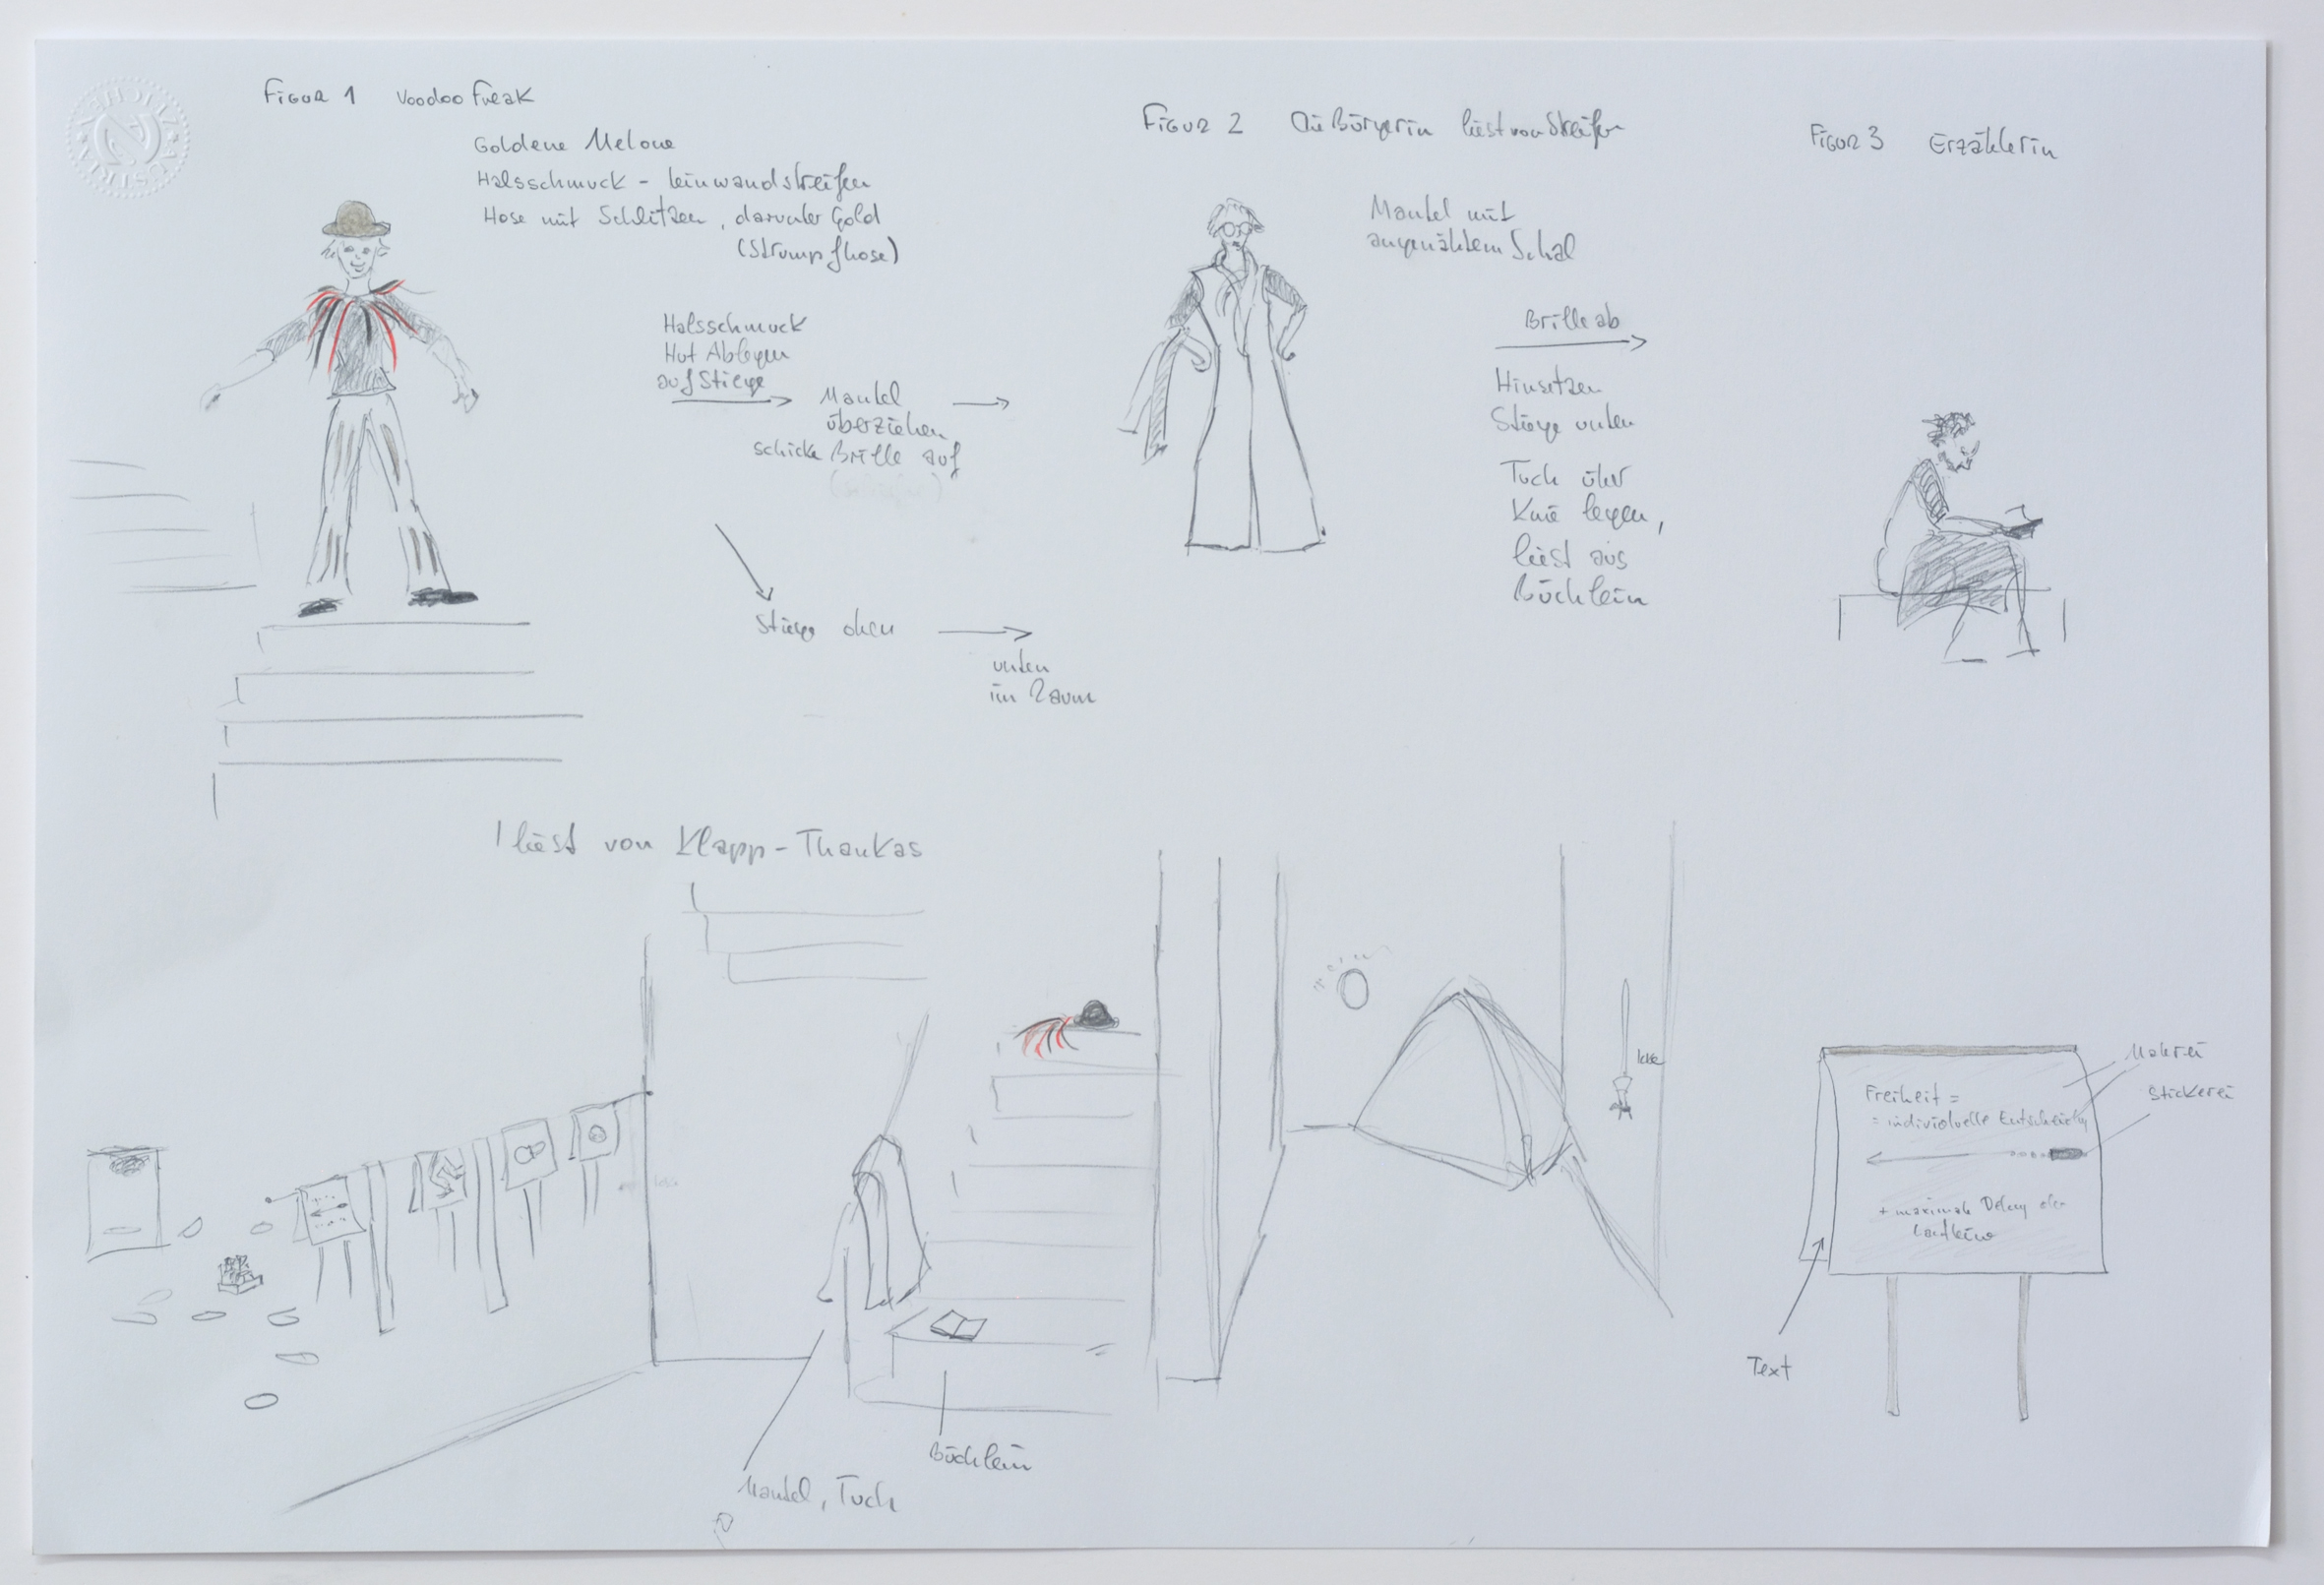 Figur 1 Voodoo Freak
Goldene Melone
Halsschmuck - Leinwandstreifen
Hose mit Schlitzen, darunter Gold
(Strumpfhose)
Halsschmuck
Hut Ablegen
auf Stiege
Mantel
überziehen
schicke Brille auf
Stiege oben
unten
im Raum
Figur 2 Die Bürgerin liest von Streifen
Mantel mit
angenähtem Schal
Brille ab
Hinsetzen
Stiege unten
Tuch über
Knie legen,
liest aus
Büchlein
Figur 3 Erzählerin
1 liest von Klapp-Thankas
Mantel, Tuch
Büchlein
Malerei
Stickerei
Freiheit =
= individuelle
+ maximale
Text
AUSTRIA